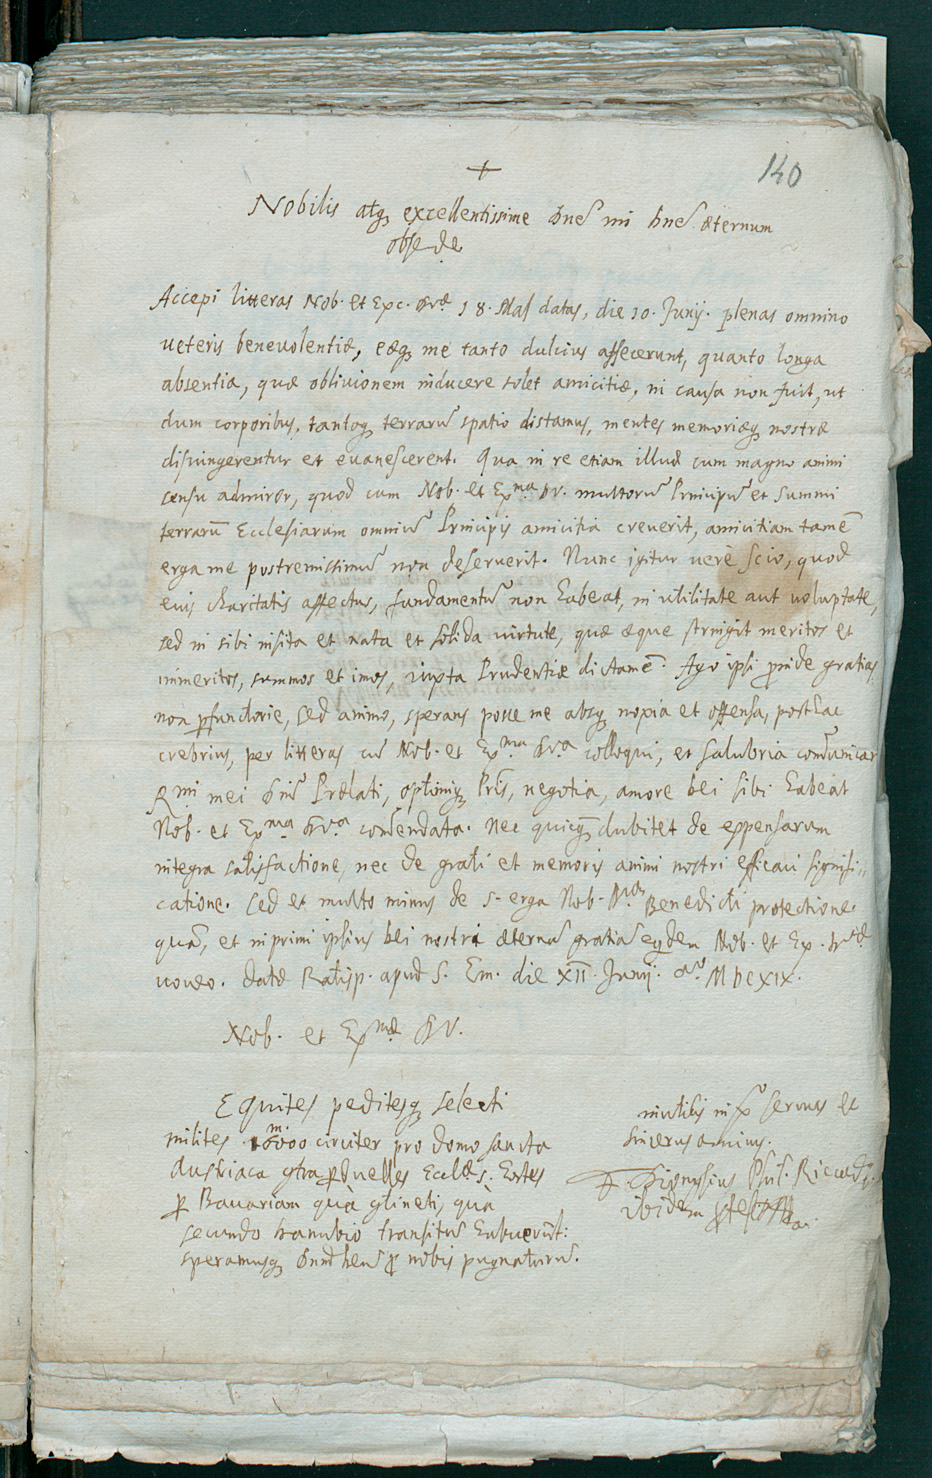 140
+
Nobilis atq; excellentissime Dne mi Dne æternum
obse de
Accepi litteras Nob. et Exc. Dvæ 18. Mai datas, die 10. Junij. plenas omnino
veteris benevolentiæ, eæq; me tanto dulcius affecerunt, quanto longa
absentia, quæ oblivionem inducere solet amicitiæ, in causa non fuit, ut
dum corporibus, tantoq; terrarū spatio distamus, mentes memoriæq; nostræ
disiungerentur et evanescerent. Qua in re etiam illud cum magno animi
sensu admiror, quod cum Nob. et Exma Dv. multorū Principū et summi
terrarū Ecclesiarum omniū Principis amicitia creverit, amicitiam tamē
erga me postremissimū non deseruerit. Nunc igitur verè scio, quod
eius charitatis affectus, fundamentū non habeat, in utilitate aut voluptate,
sed in sibi insita et nata et solida virtute, quæ æque stringit meritos et
immeritos, summos et imos, iuxta Prudentiæ dictamē. Ago ipsi proide gratias
non pfunctorie, sed animo, sperans posse me absq; noxia et offensa, posthac
crebrius, per litteras cū Nob. et Exma Dva colloqui, et salubria com̄unicar
Rmi mei Dni Prælati, optimiq; Pris, negotia, amore Dei sibi habeat
Nob. et Exma Dva com̄endata. Nec quicq̄ dubitet de expensarum
integra satisfactione, nec de grati et memoris animi nostri efficaci signifi=
catione. sed et multo minus de s. erga Nob. Dvā Benedicti protectione.
quā, et in primi ipsius Dei nostri æternū gratiā eidem Nob. et Ex. Dvæ
voveo. datæ Ratisp. apud S. Em. die XII. Junij. ao MDCXIX.
Nob. et Exmæ DV.
Equites peditesq; selecti
milites 16000 m. circiter pro domo sancta
Austriaca gtra pduelles Ecclæ s. hortes
p Bavariam quà gtineti, quà
secundo Danubio transitū habuerūt:
speramusq; Dnm̄ Deū p nobis pugnaturū.
inutilis in xo servus et
sincerus amicus.
F. Dionysius
ibidem